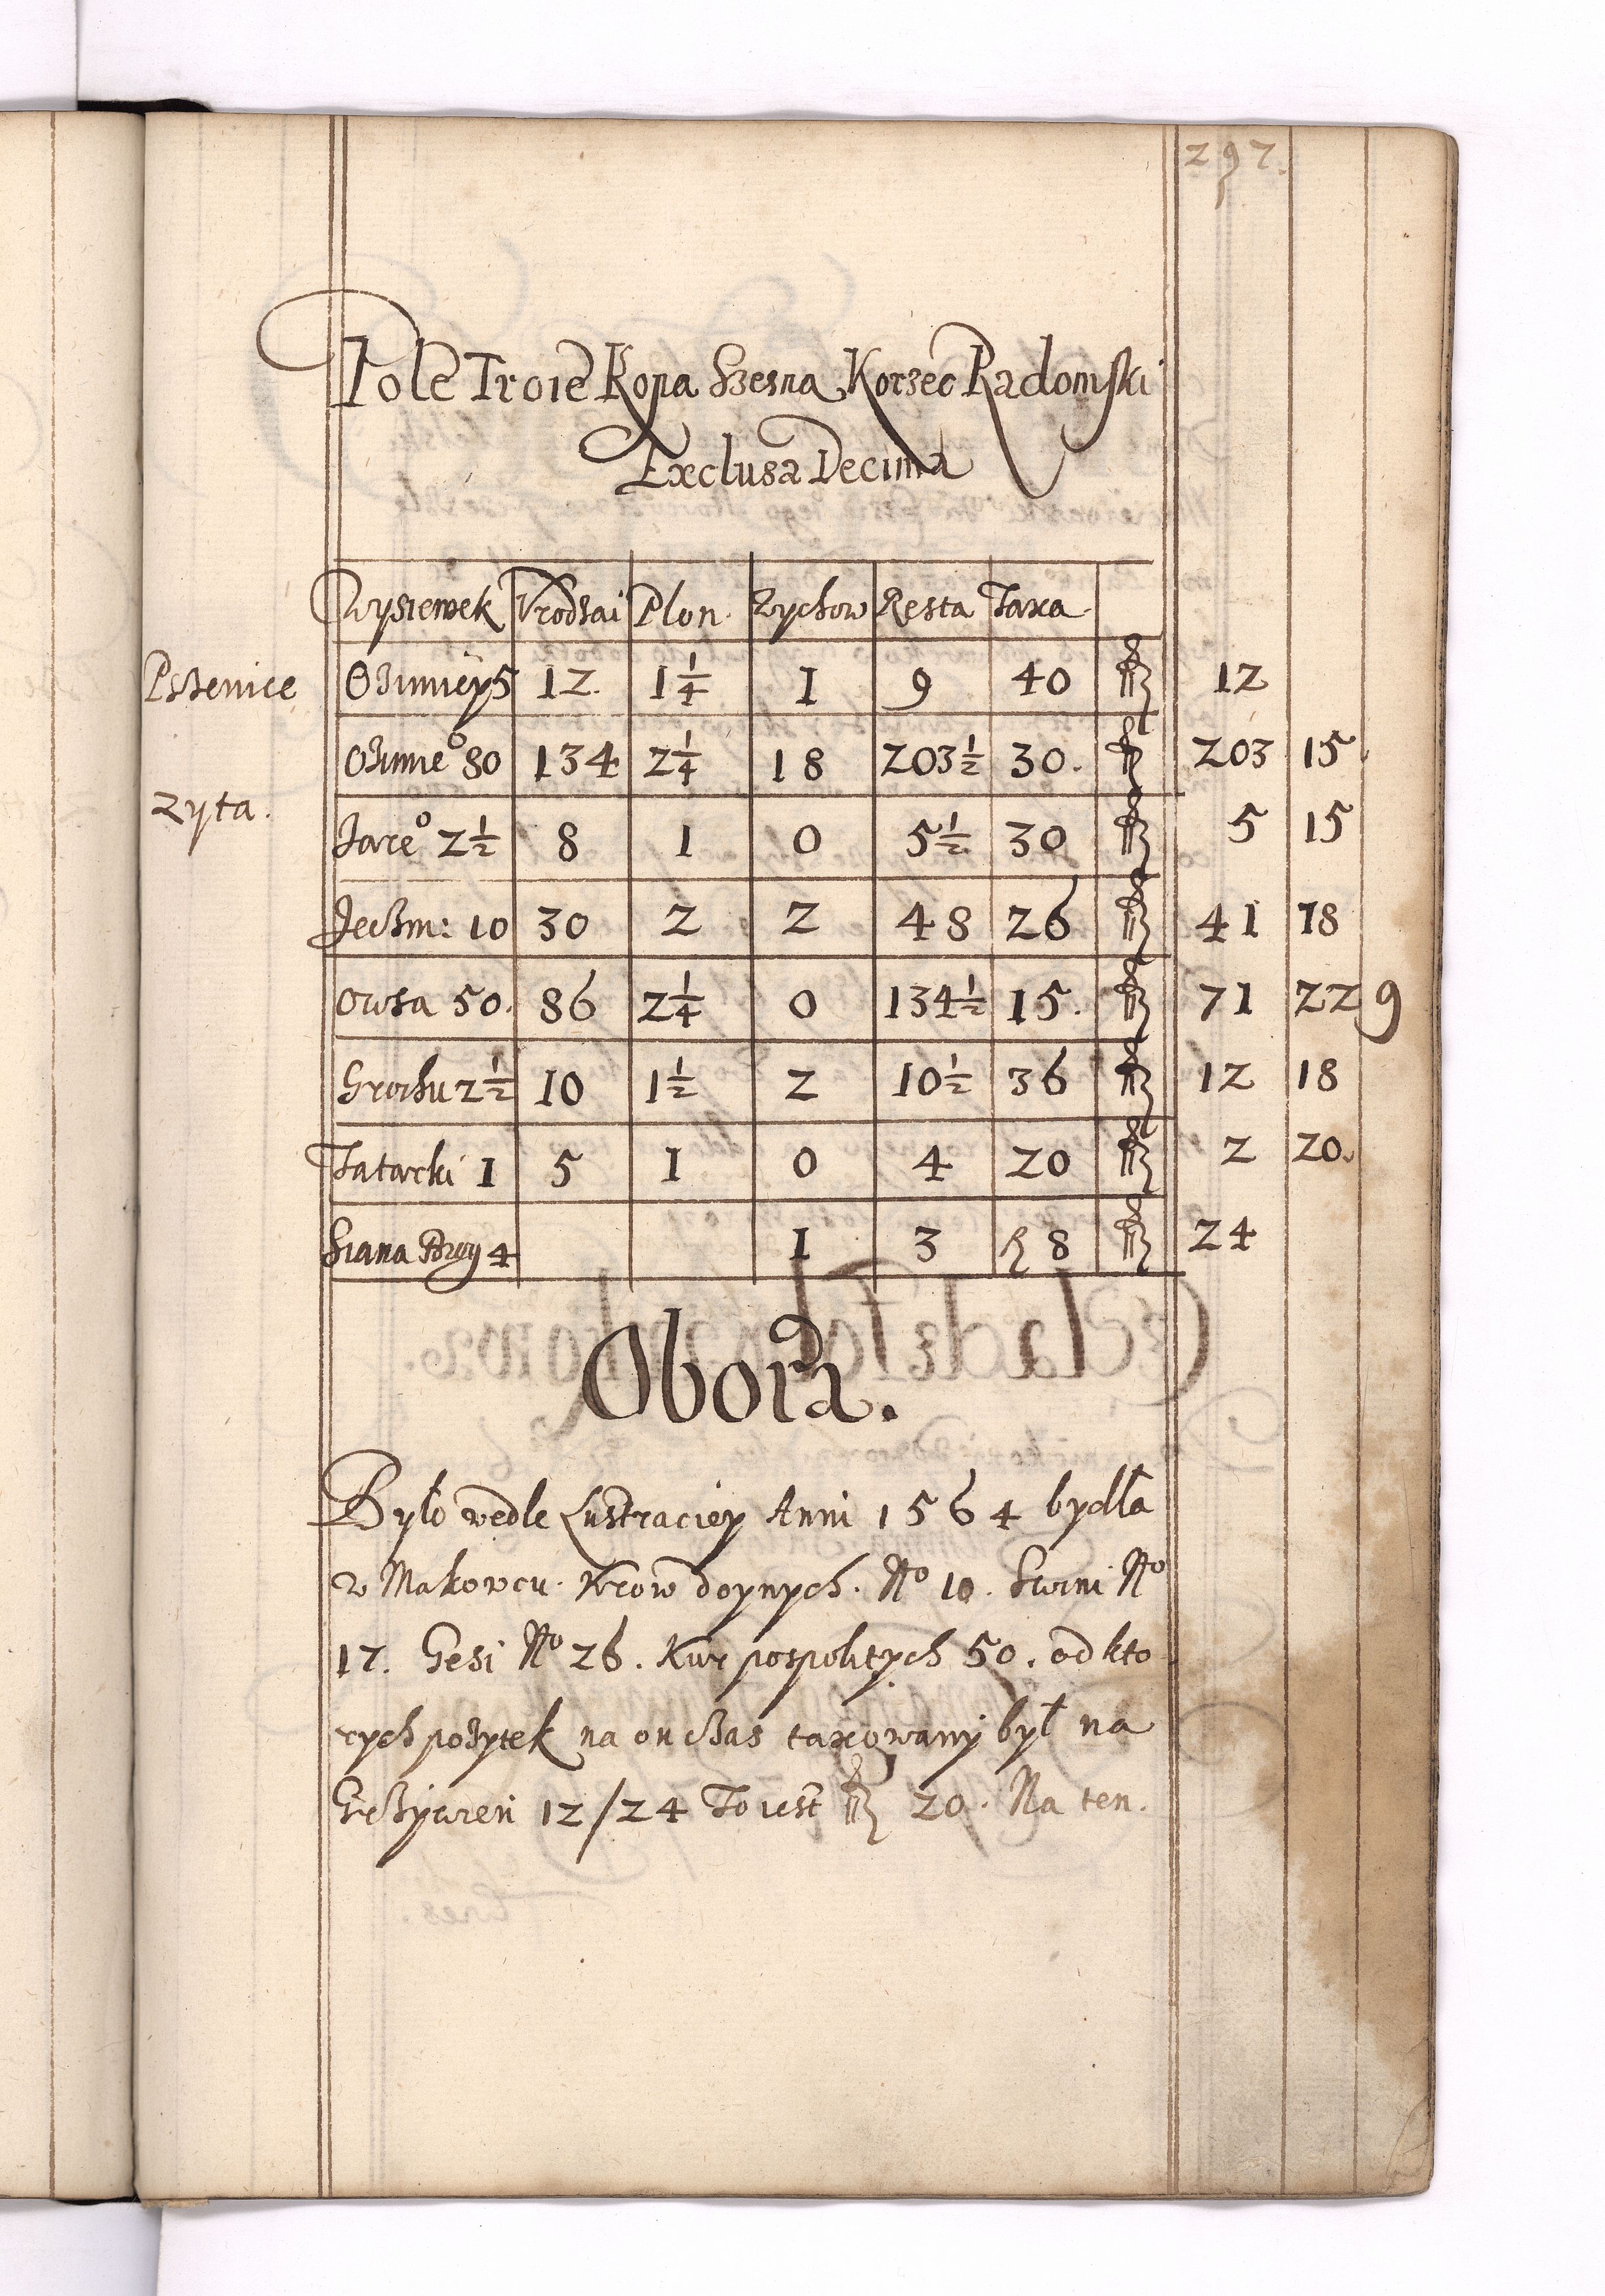 297.
Pole Troie Kopa Szesna Korzec Radomski
Exclusa Decima
Wysiewek Vrodzai Plon. Zychow Resta Taxa
Pszenice Ozimiey 5 12. 1 1/4 1 9 40 12
Ozime° 80 134 2 1/4 18 203 1/2 30. 203 15
Zyta.
Jare° 2 1/2 8 1 0 5 1/2 30 5 15
Jeczm: 10 30 2 2 48 26 41 18
Owsa 50. 86 2 1/4 0 134 1/2 15. 71 22 9
Grochu 2 1/2 10 1 1/2 2 10 1/2 36 12 18
Tatarki 1 5 1 0 4 20 2 20.
Siana Brog 4 1 3 8 24
Obora.
Było wedle Lustraciey Anni 1564 bydła
w Makowcu. Krow doynych. No 10. Swini No
17. Gesi No 26. Kur pospolitych 50. od kto
rych pozytek na on czas taxowany był na
Grzywien 12/24 To iest fl 20. Na ten.